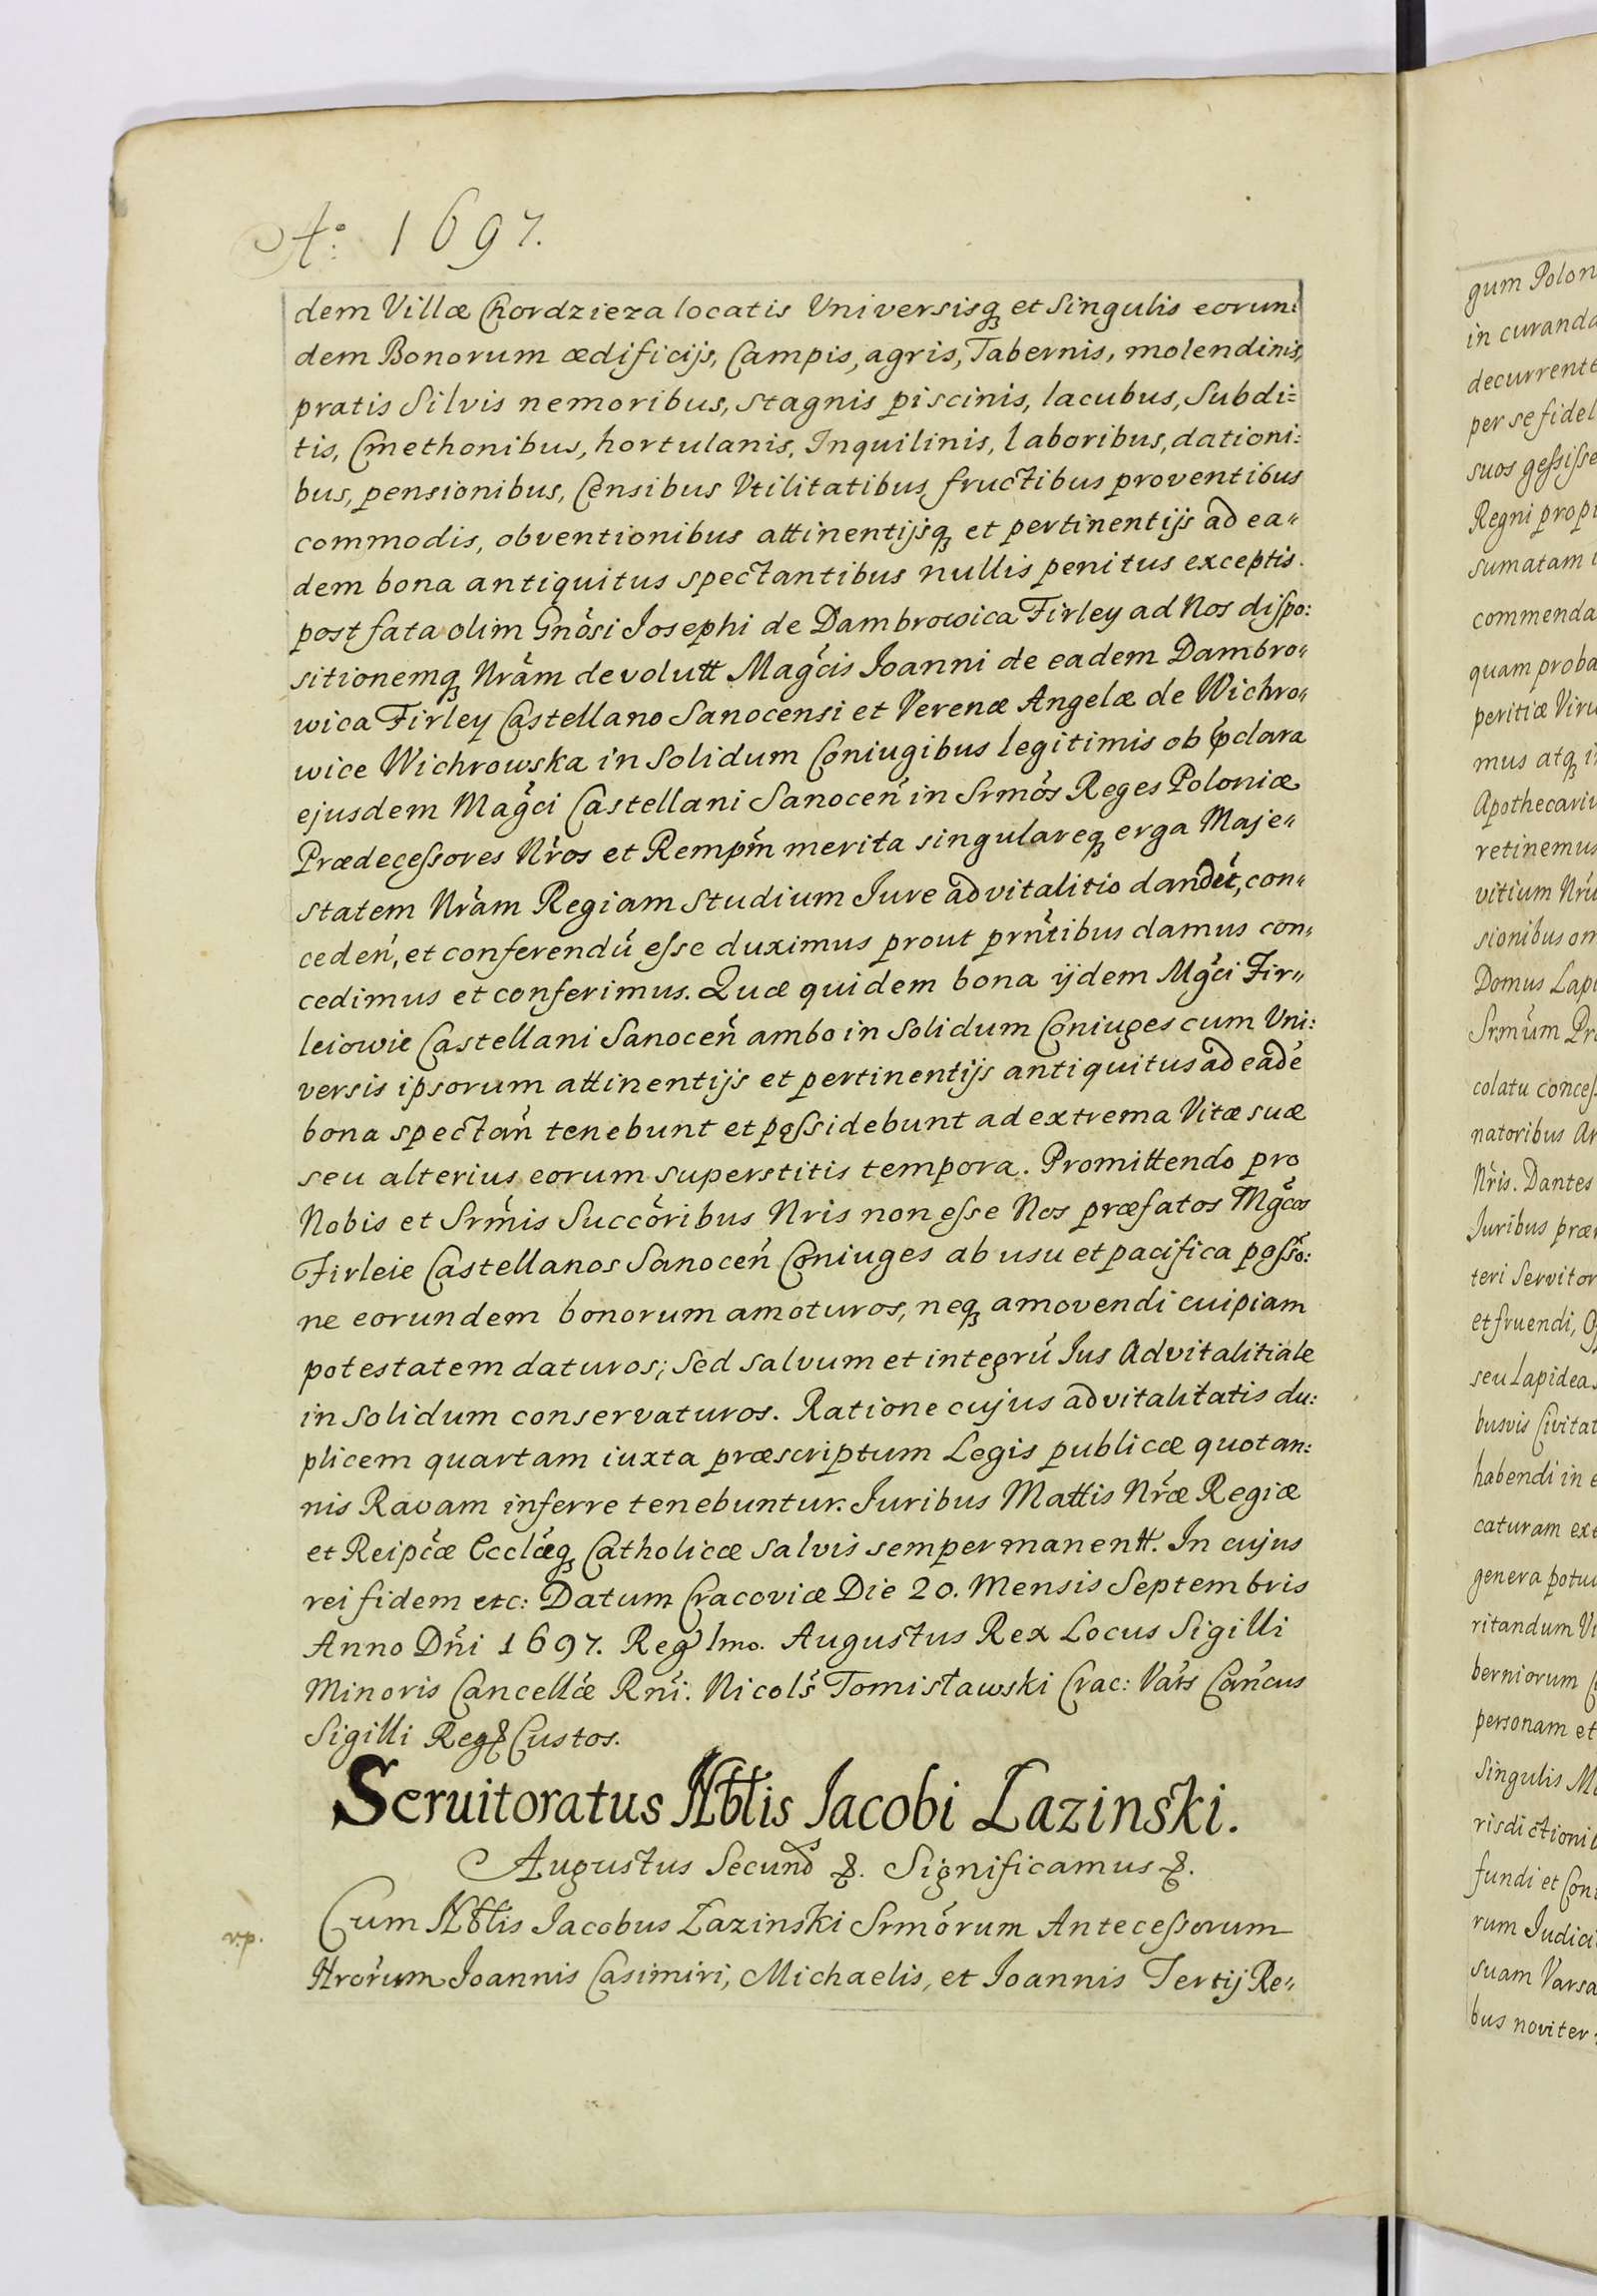 Aº: 1697.
dem Villæ Chordzieza locatis Universisq́ꝫ et Singulis eorun:
dem Bonorum ædificijs, Campis, agris, Tabernis, molendinis,
pratis Silvis nemoribus, stagnis piscinis, lacubus, Subdi=
tis, Cmethonibus, hortulanis, Inquilinis, laboribus, dationi:
bus, pensionibus, Censibus Utilitatibus, fructibus proventibus
commodis, obventionibus attinentijsqꝫ et pertinentijs ad ea"
dem bona antiquitus spectantibus nullis penitus exceptis.
post fata olim Gnősi Josephi de Dambrowica Firley ad Nos dispo:
sitionemqꝫ Nrãm devolutt Magc̃is Joanni de eadem Dambro"
wica Firley Castellano Sanocensi et Verenæ Angelæ de Wichro"
wice Wichrowska in Solidum Coniugibus legitimis ob p̃clara
ejusdem Magc̃i Castellani Sanoceñ in Srmõs Reges Poloniæ
Prædeceſsores Nr̃os et Rempm̃ merita singulareqꝫ erga Maje"
statem Nrãm Regiam studium Jure advitalitio dandũt, con"
cedeń, et conferendũ eſse duximus prout prñtibus damus con"
cedimus et conferimus. Quæ quidem bona ijdem Mgc̃i Fir"
leiowie Castellani Sanoceñ ambo in Solidum Coniuges cum Uni:
versis ipsorum attinentijs et pertinentijs antiquitus ad eadẽ
bona spectañ tenebunt et poſsidebunt ad extrema Vitæ suæ
seu alterius eorum superstitis tempora. Promittendo pro
Nobis et Srmĩs Succõribus Nris non eſse Nos præfatos Mgc̃os
Firleie Castellanos Sanoceñ Coniuges ab usu et pacifica poſsõ:
ne eorundem bonorum amoturos, neqꝫ amovendi cuipiam
potestatem daturos; Sed salvum et integrũ Ius Advitalitiale
in Solidum conservaturos. Ratione cujus advitalitatis du:
plicem quartam iuxta præscriptum Legis publicæ quotan:
nis Ravam inferre tenebuntur. Juribus Mattis Nræ̃ Regiæ
et Reipc̃æ Ecclæ̃qꝫ Catholicæ salvis semper manentt. In cujus
rei fidem etc: Datum Cracoviæ Die 20. Mensis Septembris
Anno Dñi 1697. Reg̃ Imo. Augustus Rex Locus Sigilli
Minoris Cancellæ̃ Rnĩ. Nicols̃ Tomisławski Crac: Vars̃ Cañcus
Sigilli Reg Custos.
Seruitoratus Nbtlis Jacobi Łazinski.
Augustus Secund9 &. Significamus &.
v.p.
Cum Nbtlis Jacobus Łazinski Srmõrum Anteceſsorum
Nrõrum Joannis Casimiri, Michaelis, et Joannis Tertij Re"
gum Polon
in curanda
decurrente
per se fidel
suos geſsiſse
Regni prop
sumatam
commenda
quam proba
peritiæ Viru
mus atqꝫ i
Apothecariu
retinemus
vitium Nru
sionibus om
Domus Lapi
Srmũm Pr
colatu conceſ
natoribus Ar
Nr̃is. Dantes
Juribus præ
teri Servitor
et fruendi,
seu Lapideas
busvis Civitat
habendi in
caturam ext
genera potu
ritandum Vi
berniorum
personam et
Singulis M
risdictioni
fundi et Con
rum Judici
suam Varsa
bus noviter